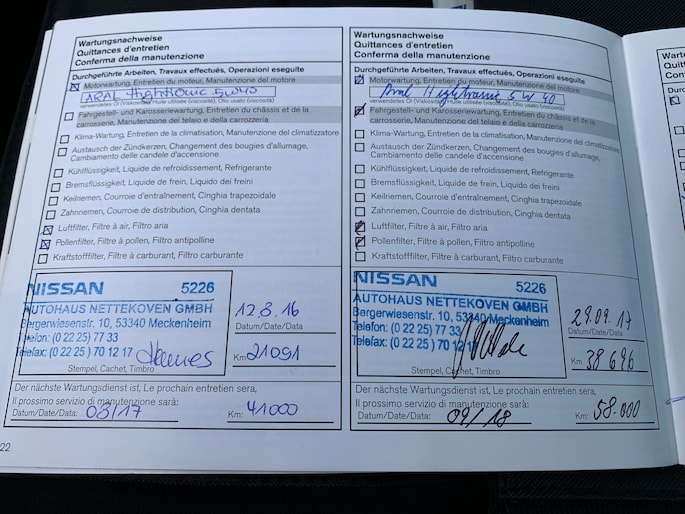 Wartungsnachweise
Quittances d'entretien
Conferma della manutenzione
Durchgeführte Arbeiten, Travaux effectués, Operazioni eseguite
Motorwartung, Entretien du moteur, Manutenzione del motore
ARAL HighTronic 5W40
verwendetes Öl (Viskosität), Huile utilisée (viscosité), Olio usato (viscosità)
Fahrgestell- und Karosseriewartung, Entretien du châssis et de la
carrosserie, Manutenzione del telaio e della carrozzeria
Klima-Wartung, Entretien de la climatisation, Manutenzione del climatizzatore
Austausch der Zündkerzen, Changement des bougies d'allumage,
Cambiamento delle candele d'accensione
Kühlflüssigkeit, Liquide de refroidissement, Refrigerante
Bremsflüssigkeit, Liquide de frein, Liquido dei freini
Keilriemen, Courroie d'entraînement, Cinghia trapezoidale
Zahnriemen, Courroie de distribution, Cinghia dentata
Luftfilter, Filtre à air, Filtro aria
Pollenfilter, Filtre à pollen, Filtro antipolline
Kraftstofffilter, Filtre à carburant, Filtro carburante
NISSAN 5226
AUTOHAUS NETTEKOVEN GMBH
Bergerwiesenstr. 10, 53340 Meckenheim
Telefon: (0 22 25) 77 33
Telefax: (0 22 25) 70 12 17
Stempel, Cachet, Timbro
12.8.16
Datum/Date/Data
Km 21091
Der nächste Wartungsdienst ist, Le prochain entretien sera,
Il prossimo servizio di manutenzione sarà:
Datum/Date/Data: 08/17 Km: 41000
22
Wartungsnachweise
Quittances d'entretien
Conferma della manutenzione
Durchgeführte Arbeiten, Travaux effectués, Operazioni eseguite
Motorwartung, Entretien du moteur, Manutenzione del motore
Aral Hightronic 5W40
verwendetes Öl (Viskosität), Huile utilisée (viscosité), Olio usato (viscosità)
Fahrgestell- und Karosseriewartung, Entretien du châssis et de la
carrosserie, Manutenzione del telaio e della carrozzeria
Klima-Wartung, Entretien de la climatisation, Manutenzione del climatizzatore
Austausch der Zündkerzen, Changement des bougies d'allumage,
Cambiamento delle candele d'accensione
Kühlflüssigkeit, Liquide de refroidissement, Refrigerante
Bremsflüssigkeit, Liquide de frein, Liquido dei freini
Keilriemen, Courroie d'entraînement, Cinghia trapezoidale
Zahnriemen, Courroie de distribution, Cinghia dentata
Luftfilter, Filtre à air, Filtro aria
Pollenfilter, Filtre à pollen, Filtro antipolline
Kraftstofffilter, Filtre à carburant, Filtro carburante
NISSAN 5226
AUTOHAUS NETTEKOVEN GMBH
Bergerwiesenstr. 10, 53340 Meckenheim
Telefon: (0 22 25) 77 33
Telefax: (0 22 25) 70 12
Stempel, Cachet, Timbro
29.09.17
Datum/Date/Data
Km 38696
Der nächste Wartungsdienst ist, Le prochain entretien sera,
Il prossimo servizio di manutenzione sarà:
Datum/Date/Data: 09/18 Km: 58.000